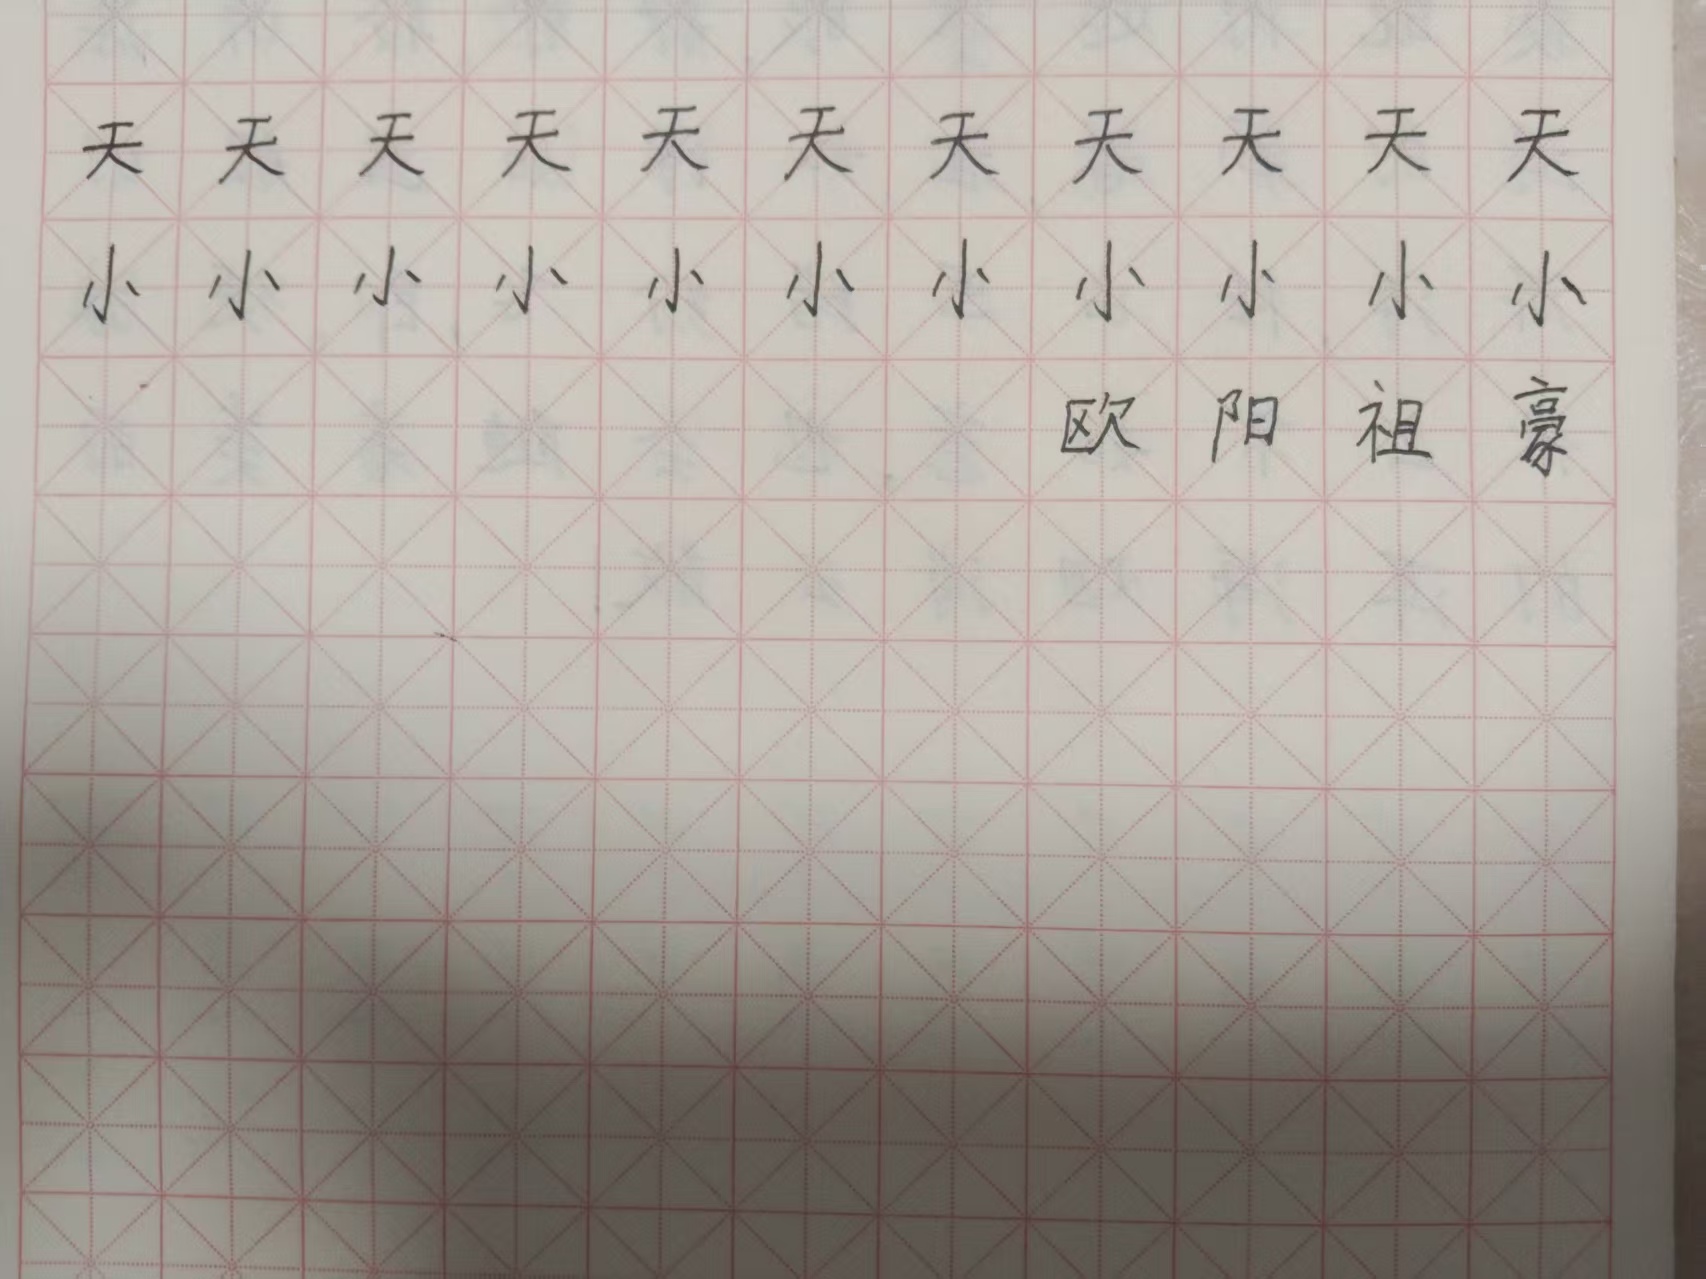 天天天天天天天天天天天
小小小小小小小小小小小
欧阳祖豪